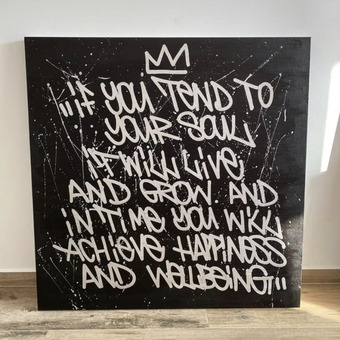 "If YOU TEND TO
YOUR SOUL
iT WILL LiVE
AND GROW AND
iN TiME YOU WiLL
ACHiEVE HAPPiNESS
AND WELLBEiNG"